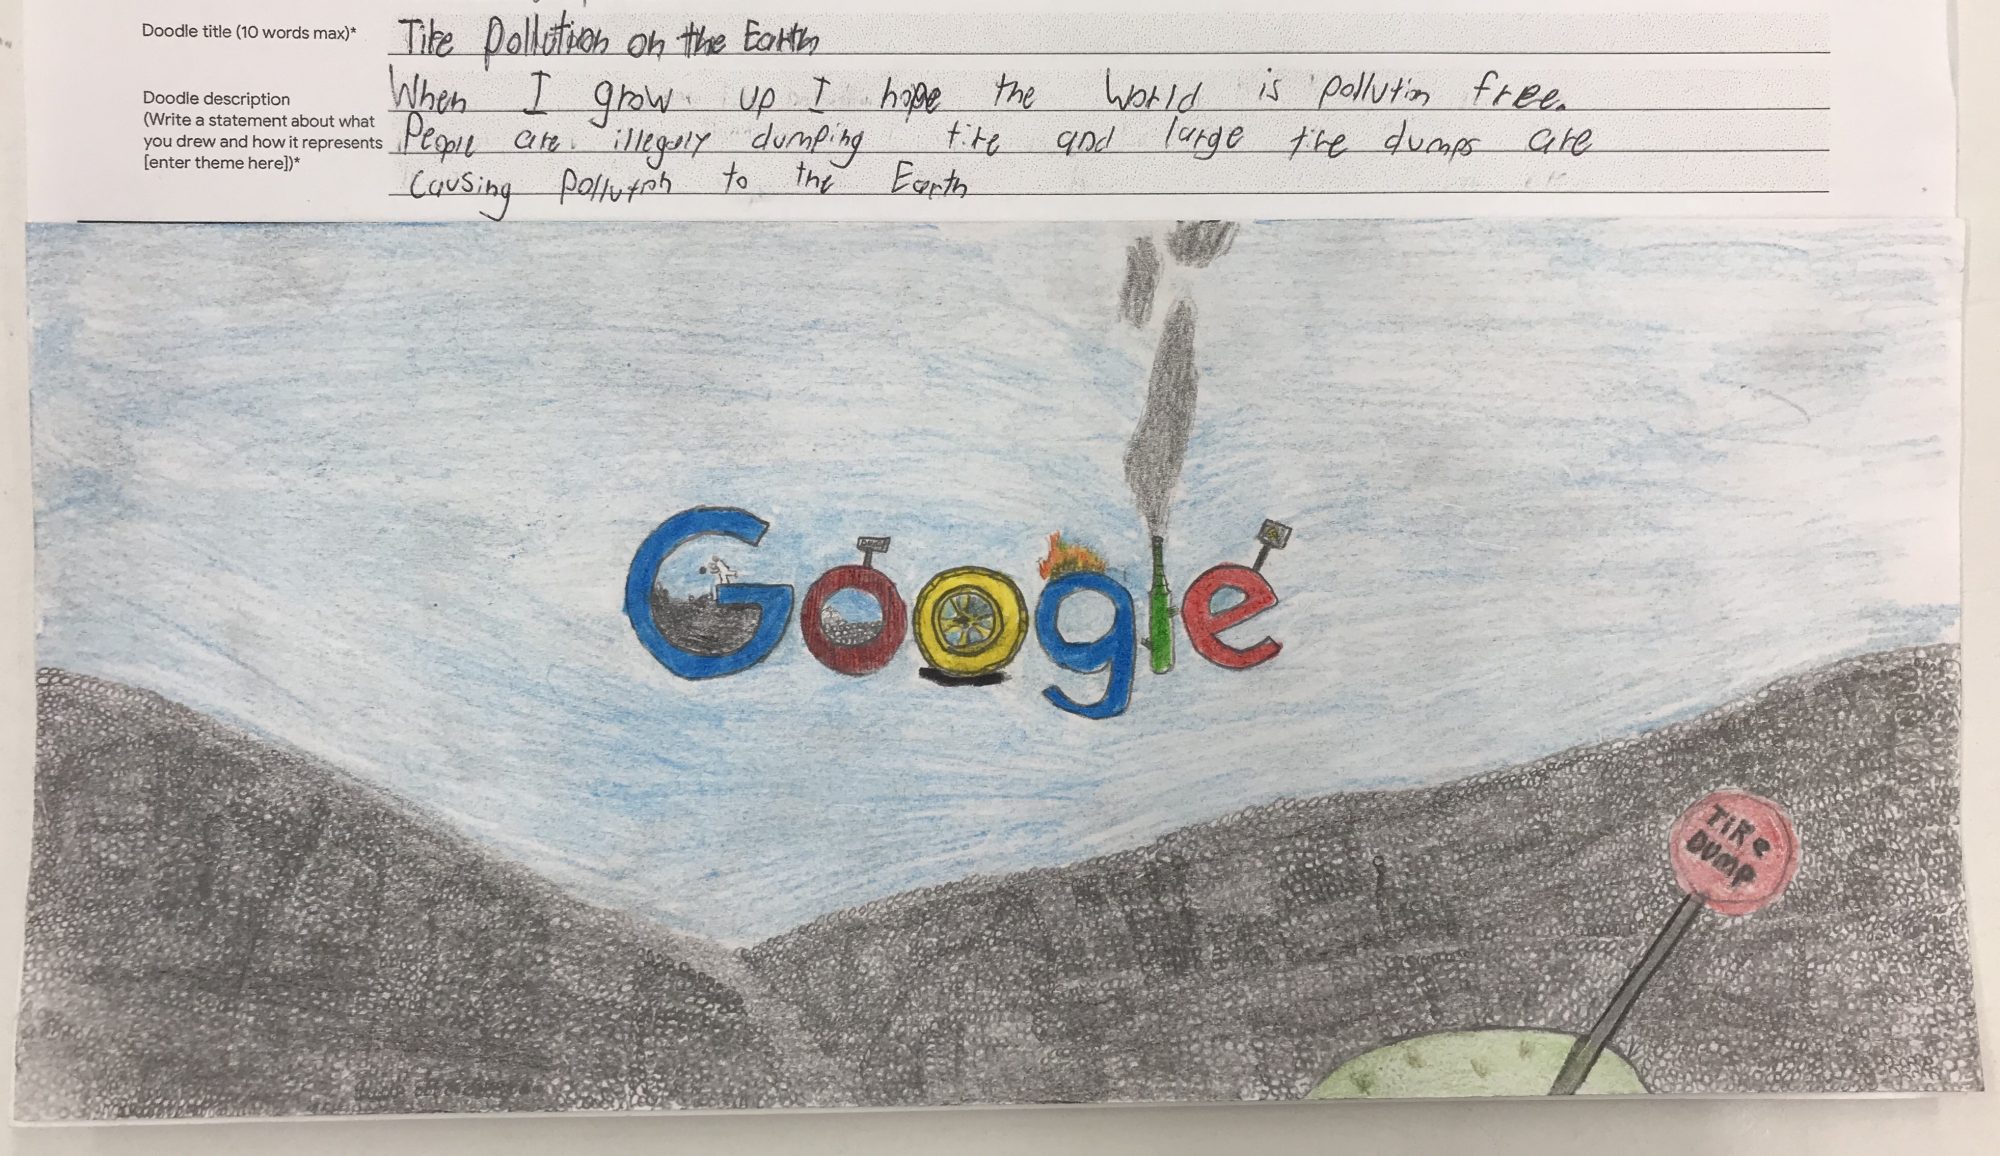 Doodle title (10 words max)*
Tire Pollution on the Earth
Doodle description
(Write a statement about what
you drew and how it represents
[enter theme here])*
When I grow up I hope the World is pollution free.
People are illegaly dumping tire and large tire dumps are
causing pollution to the Earth
Google
TIRe
DUMP